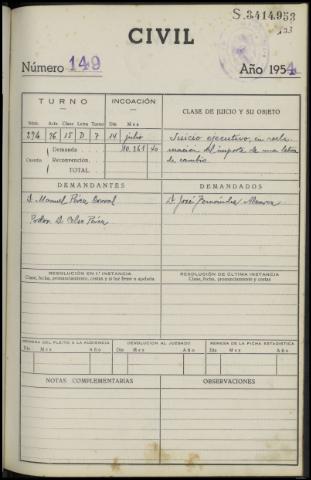 S.3414.953
CIVIL
Número 149 Año 1954
TURNO INCOACIÓN CLASE DE JUICIO Y SU OBJETO
Núm. Acta Clase Letra Turno Día Mes
274 26 15 D 7 14 julio Juicio ejecutivo en recla-
Cuantía Demanda 10.261 40 mación del importe de una letra
Reconvención de cambio
TOTAL
DEMANDANTES DEMANDADOS
D. Manuel Pérez D. José Fernández
D. Celso Pérez
RESOLUCIÓN EN 1.ª INSTANCIA RESOLUCIÓN DE ÚLTIMA INSTANCIA
Clase, fecha, pronunciamiento, costas y si fue firme o apelada Clase, fecha, pronunciamiento y costas
REMESA DEL PLEITO A LA AUDIENCIA DEVOLUCIÓN AL JUZGADO REMESA DE LA FICHA ESTADÍSTICA
Día Mes Año Día Mes Año Día Mes Año
NOTAS COMPLEMENTARIAS OBSERVACIONES